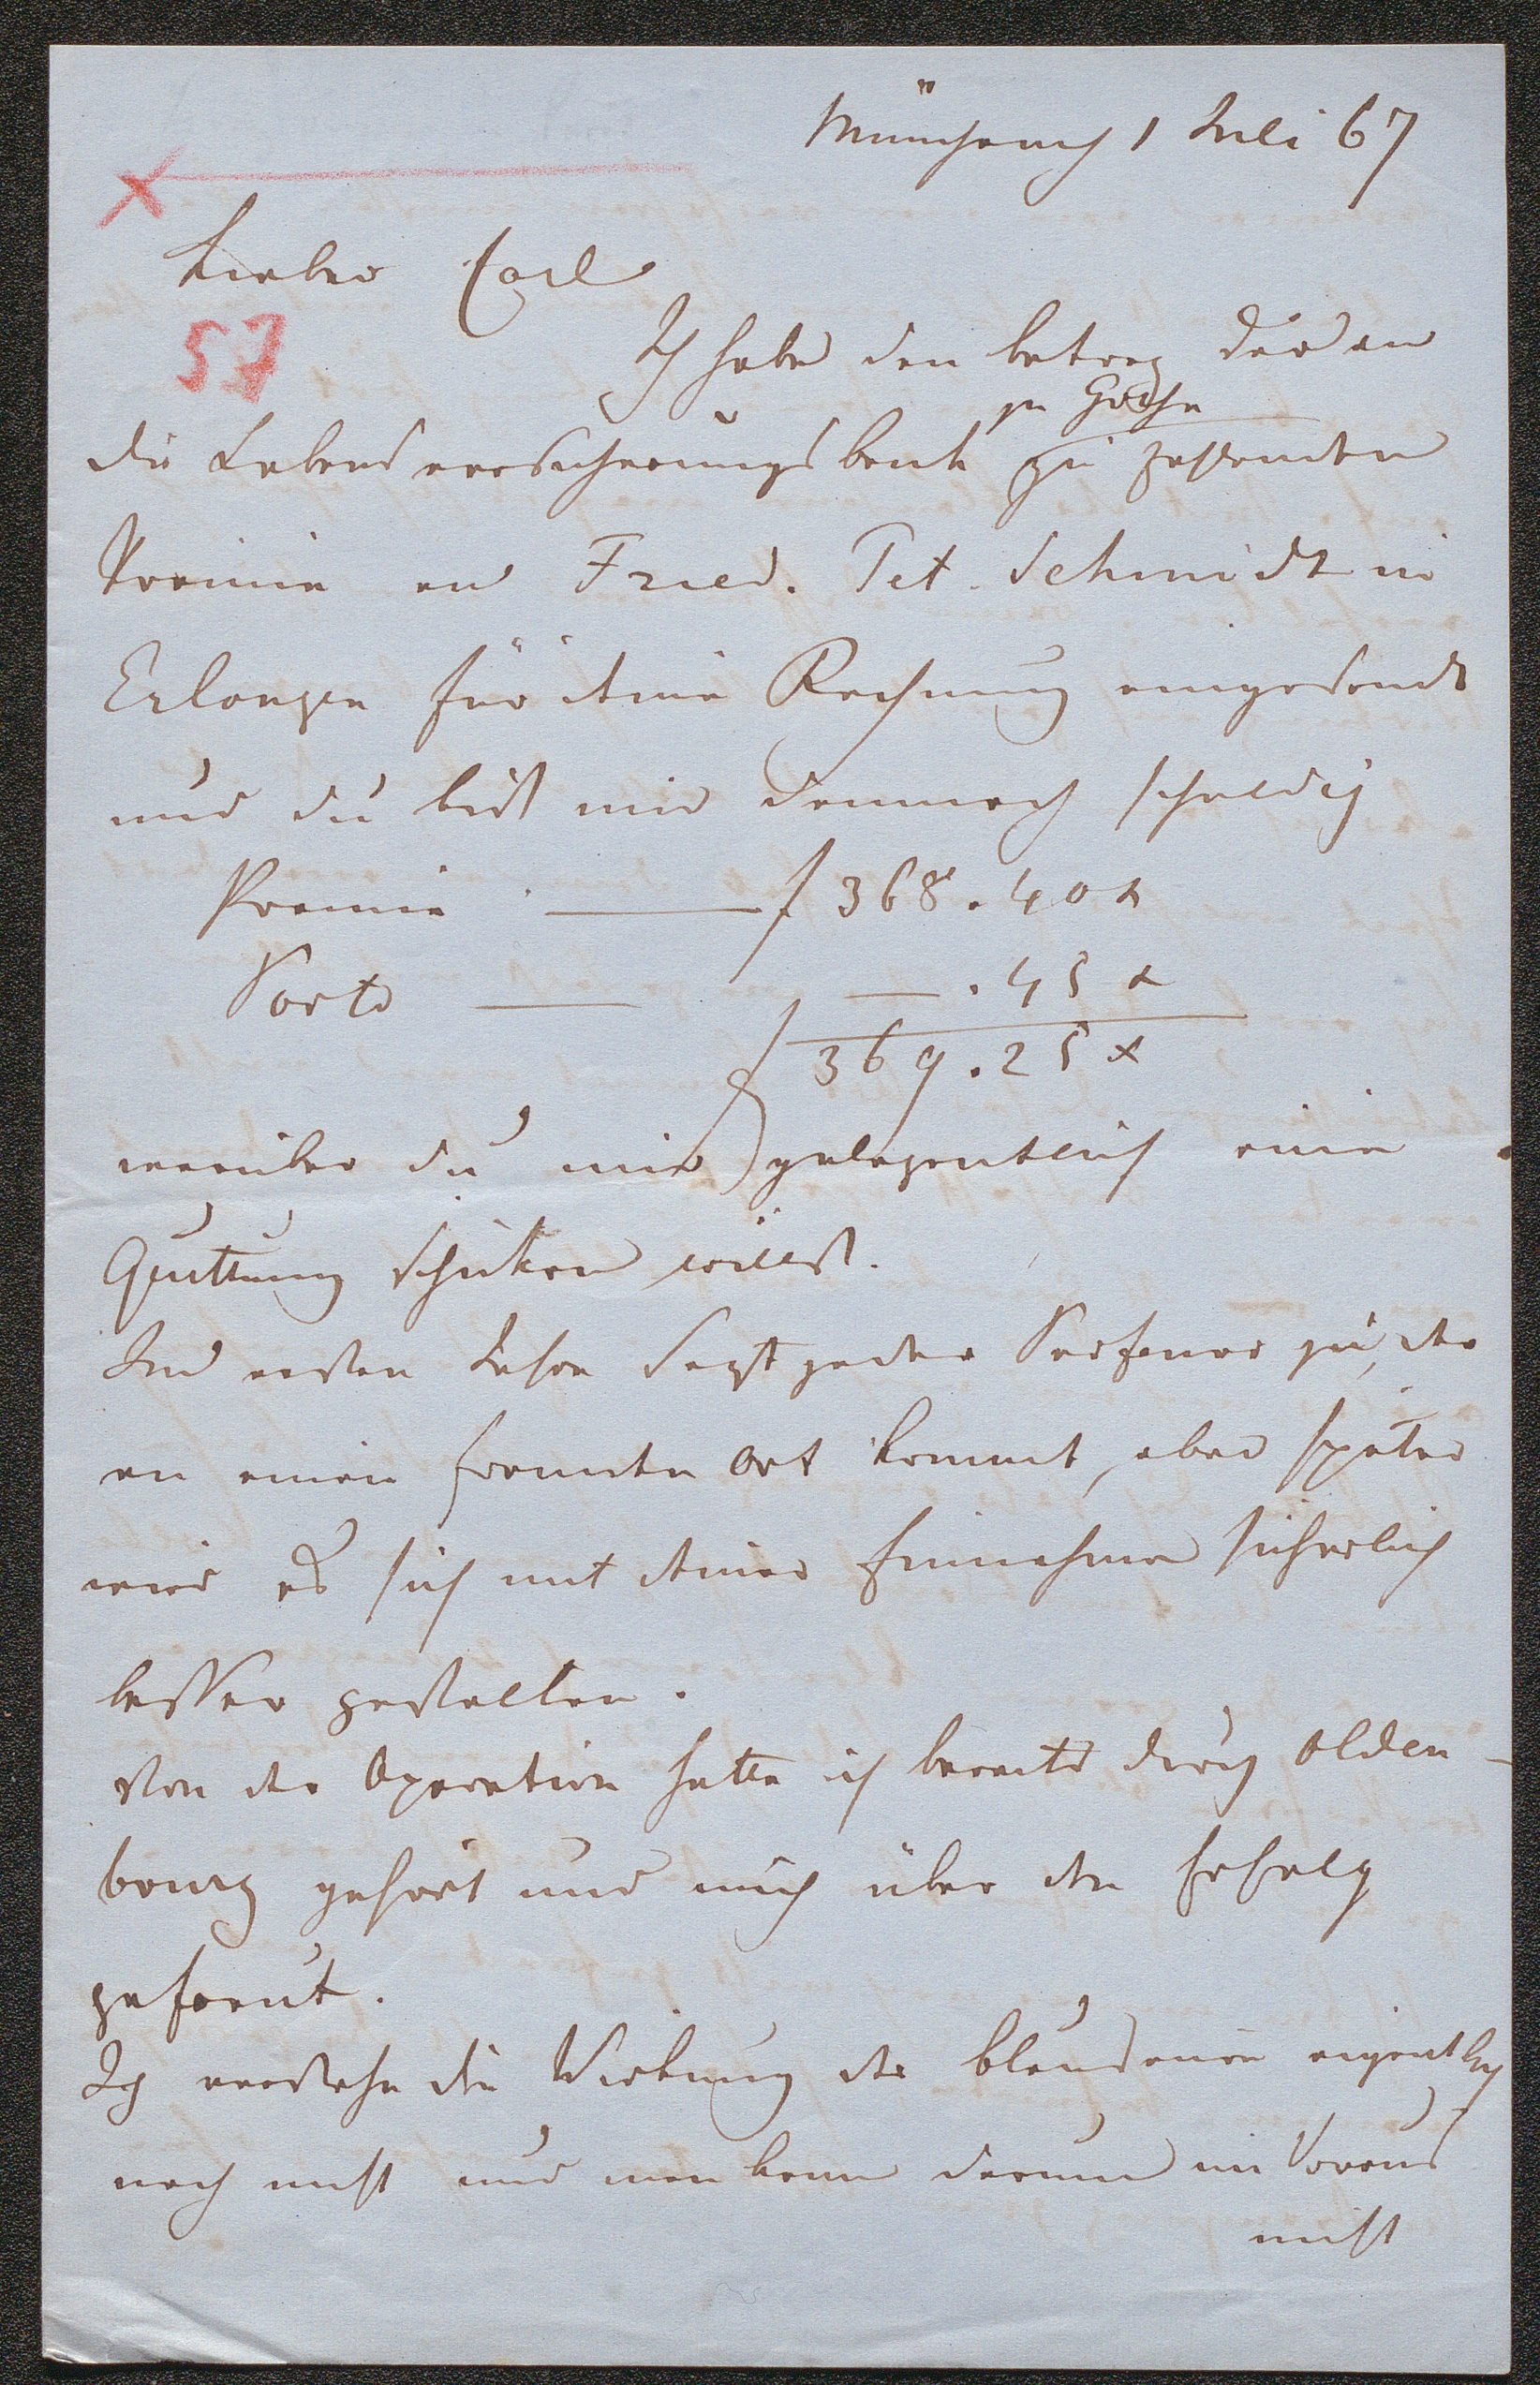 München 1 Juli 67
Lieber Carl
57
Ich habe den Betrag der an
zu Gotha
die Lebensversicherungsbank zu zahlenden
Premie an Fried. Pet. Schmidt in
Erlangen für deine Rechnung eingesandt
und du bist mir demnach schuldig
Premie — f 368.40 x
Porto — —.45 x
f 369.25 x
worüber du mir gelegentlich eine
Quittung schicken willst.
Im ersten Jahre setzt jeder Professor zu, der
an einen fremden Ort kommt, aber später
wird es sich mit deiner Einnahme sicherlich
besser gestalten.
Von der Operation hatte ich bereits durch Olden-
bourg gehört und mich über den Erfolg
gefreut.
Ich verstehe die Wirkung der Blausäure eigentlich
noch nicht und man kann darum im Voraus
nicht